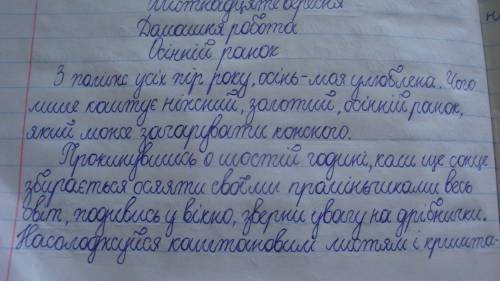 Шістнадцяте вересня
Домашня робота
Осінній ранок
З поміж усіх пір року, осінь-моя улюблена. Чого
лише коштує ніжний, золотий, осінній ранок,
який може зачарувати кожного.
Прокинувшись о шостій годині, коли ще сонце
збирається осяяти своїми промінчиками весь
світ, подивись у вікно, зверни увагу на дрібнички.
Насолоджуйся каштановим листям і кришта-